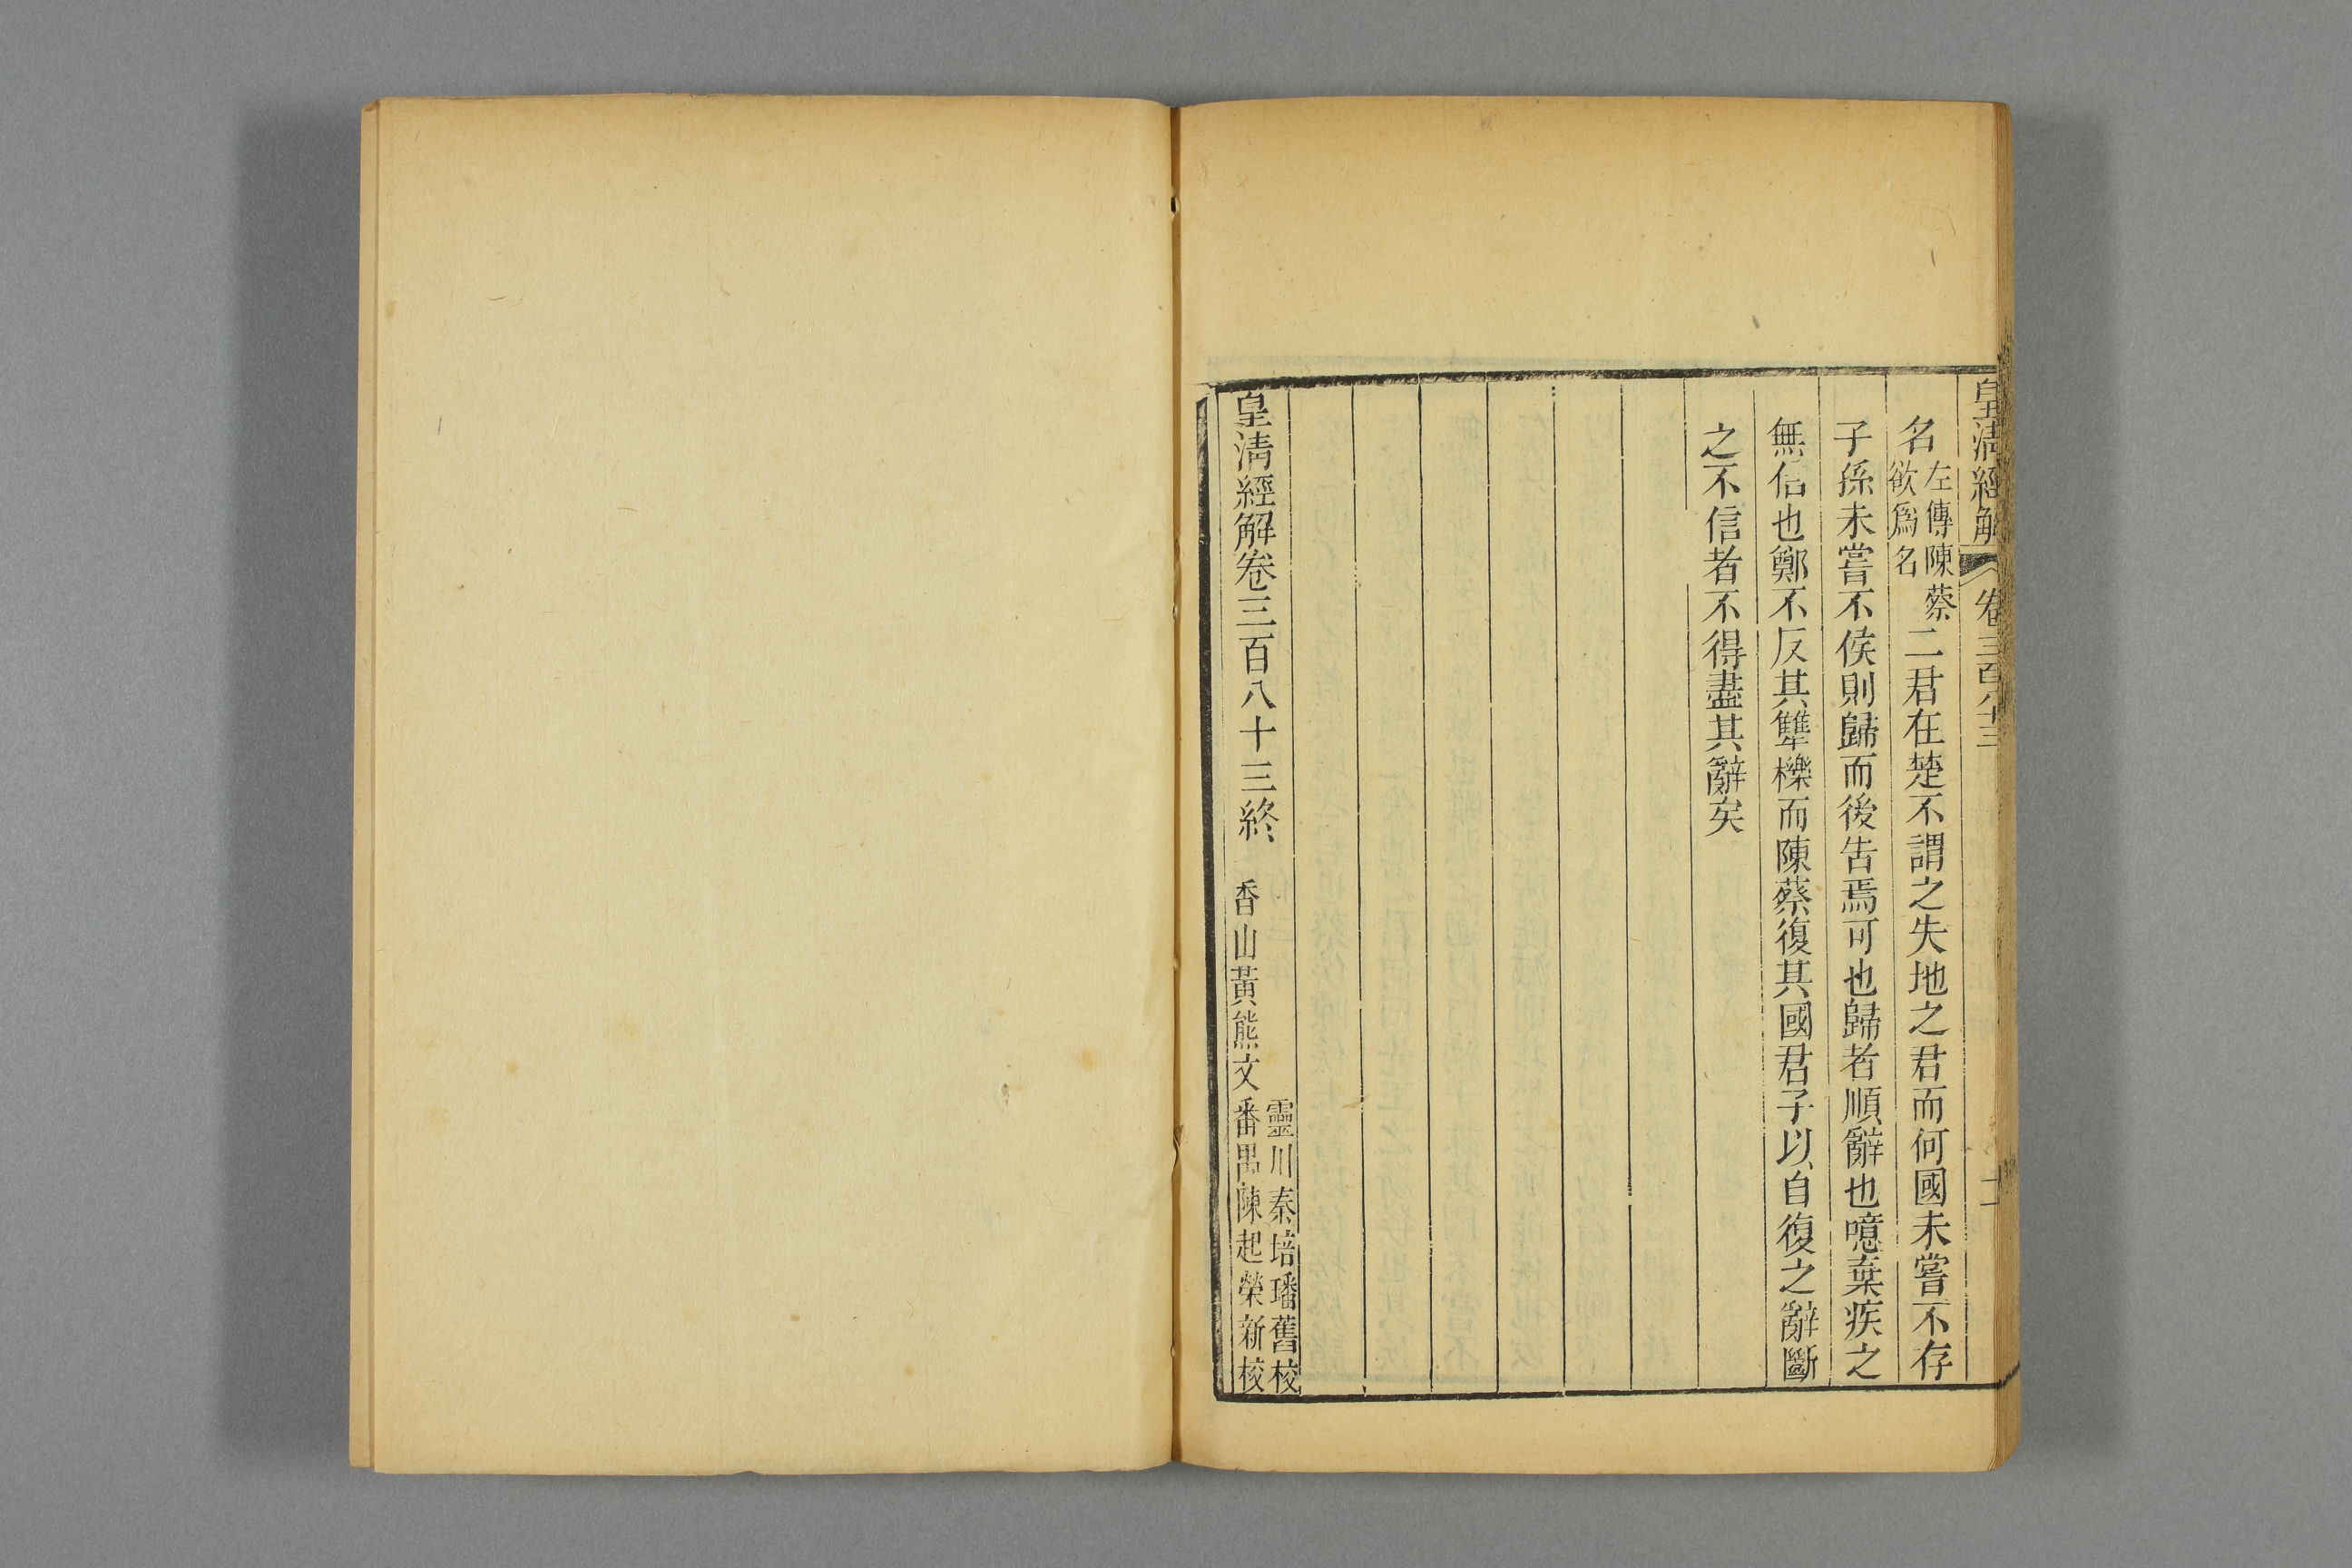 皇清經解 卷三百八十三 十一
名左傳陳蔡欲爲名二君在楚不謂之失地之君而何國未嘗不存
子孫未嘗不侯則歸而後吿焉可也歸者順辭也噫棄疾之
無信也鄭不反其犫櫟而陳蔡復其國君子以自復之辭斷
之不信者不得盡其辭矣
皇清經解卷三百八十三終
靈川秦培璠舊校
香山黃熊文
番禺陳起榮新校